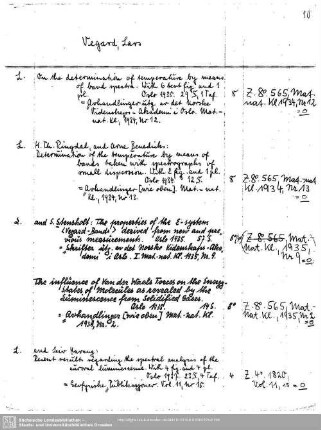 10
Vegard, Lars
L. On the determination of temperature by means
of band spectra. With 6 text fig. and 1
pl. Oslo 1935. 29 S., 1 Taf.
= Avhandlinger utg. av det Norske
Videnskaps-Akademi i Oslo. Mat.-
nat. Kl., 1934, Nr. 12.
8 Z. 8° 565, Mat.
nat. Kl. 1934, Nr 12
=0
L. H. Th. Ringdal, and Arne Benedicks:
Determination of the temperature by means of
bands taken with spectrographs of
small dispersion. With 2 fig. and 1 pl.
Oslo 12 S.
= Avhandlinger [wie oben] Mat.-nat.
Kl., 1934, Nr.
8 Z. 8° 565, Mat.
nat. Kl 1934, Nr. 13
=0
L. and S. Stensholt: The properties of the E-system
(Vegard-Bands) derived from new and pre-
vious measurements. Oslo 1935. S.
= Skrifter utg. av det Norske Videnskaps-Aka-
demi i Oslo. I Mat.-nat. Kl. 1935, Nr. 9.
Z. 8° 565, Mat.-
Nat. Kl., 1935,
Nr. 9 =0
The influence of Van der Waals Forces on the Energy-
states of Molecules as revealed by the
Luminescence from Solidified Gases.
Oslo 1935. 14 S.
= Avhandlinger [wie oben] Mat.-nat. Kl.
Nr. 2.
8° Z. 8° 565, Mat.-
Nat. Kl., 1935, Nr. 2
=0
L. and Leiv Harang:
Recent results regarding the spectral analysis of the
auroral luminescence. With 4 fig. and 4 pl.
Oslo 4 Taf.
= Geofysiske Publikasjoner. Vol. 11, Nr. 15.
4 Z. 4°. 1820,
Vol. 11, 15 =0